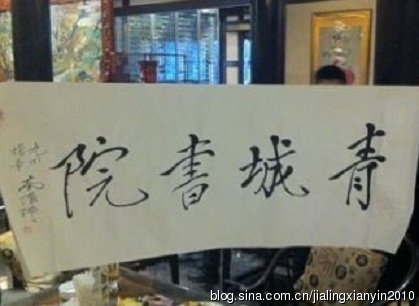 青城書院
九四
南懷瑾
blog.sina.com.cn/jialingxianyin2010